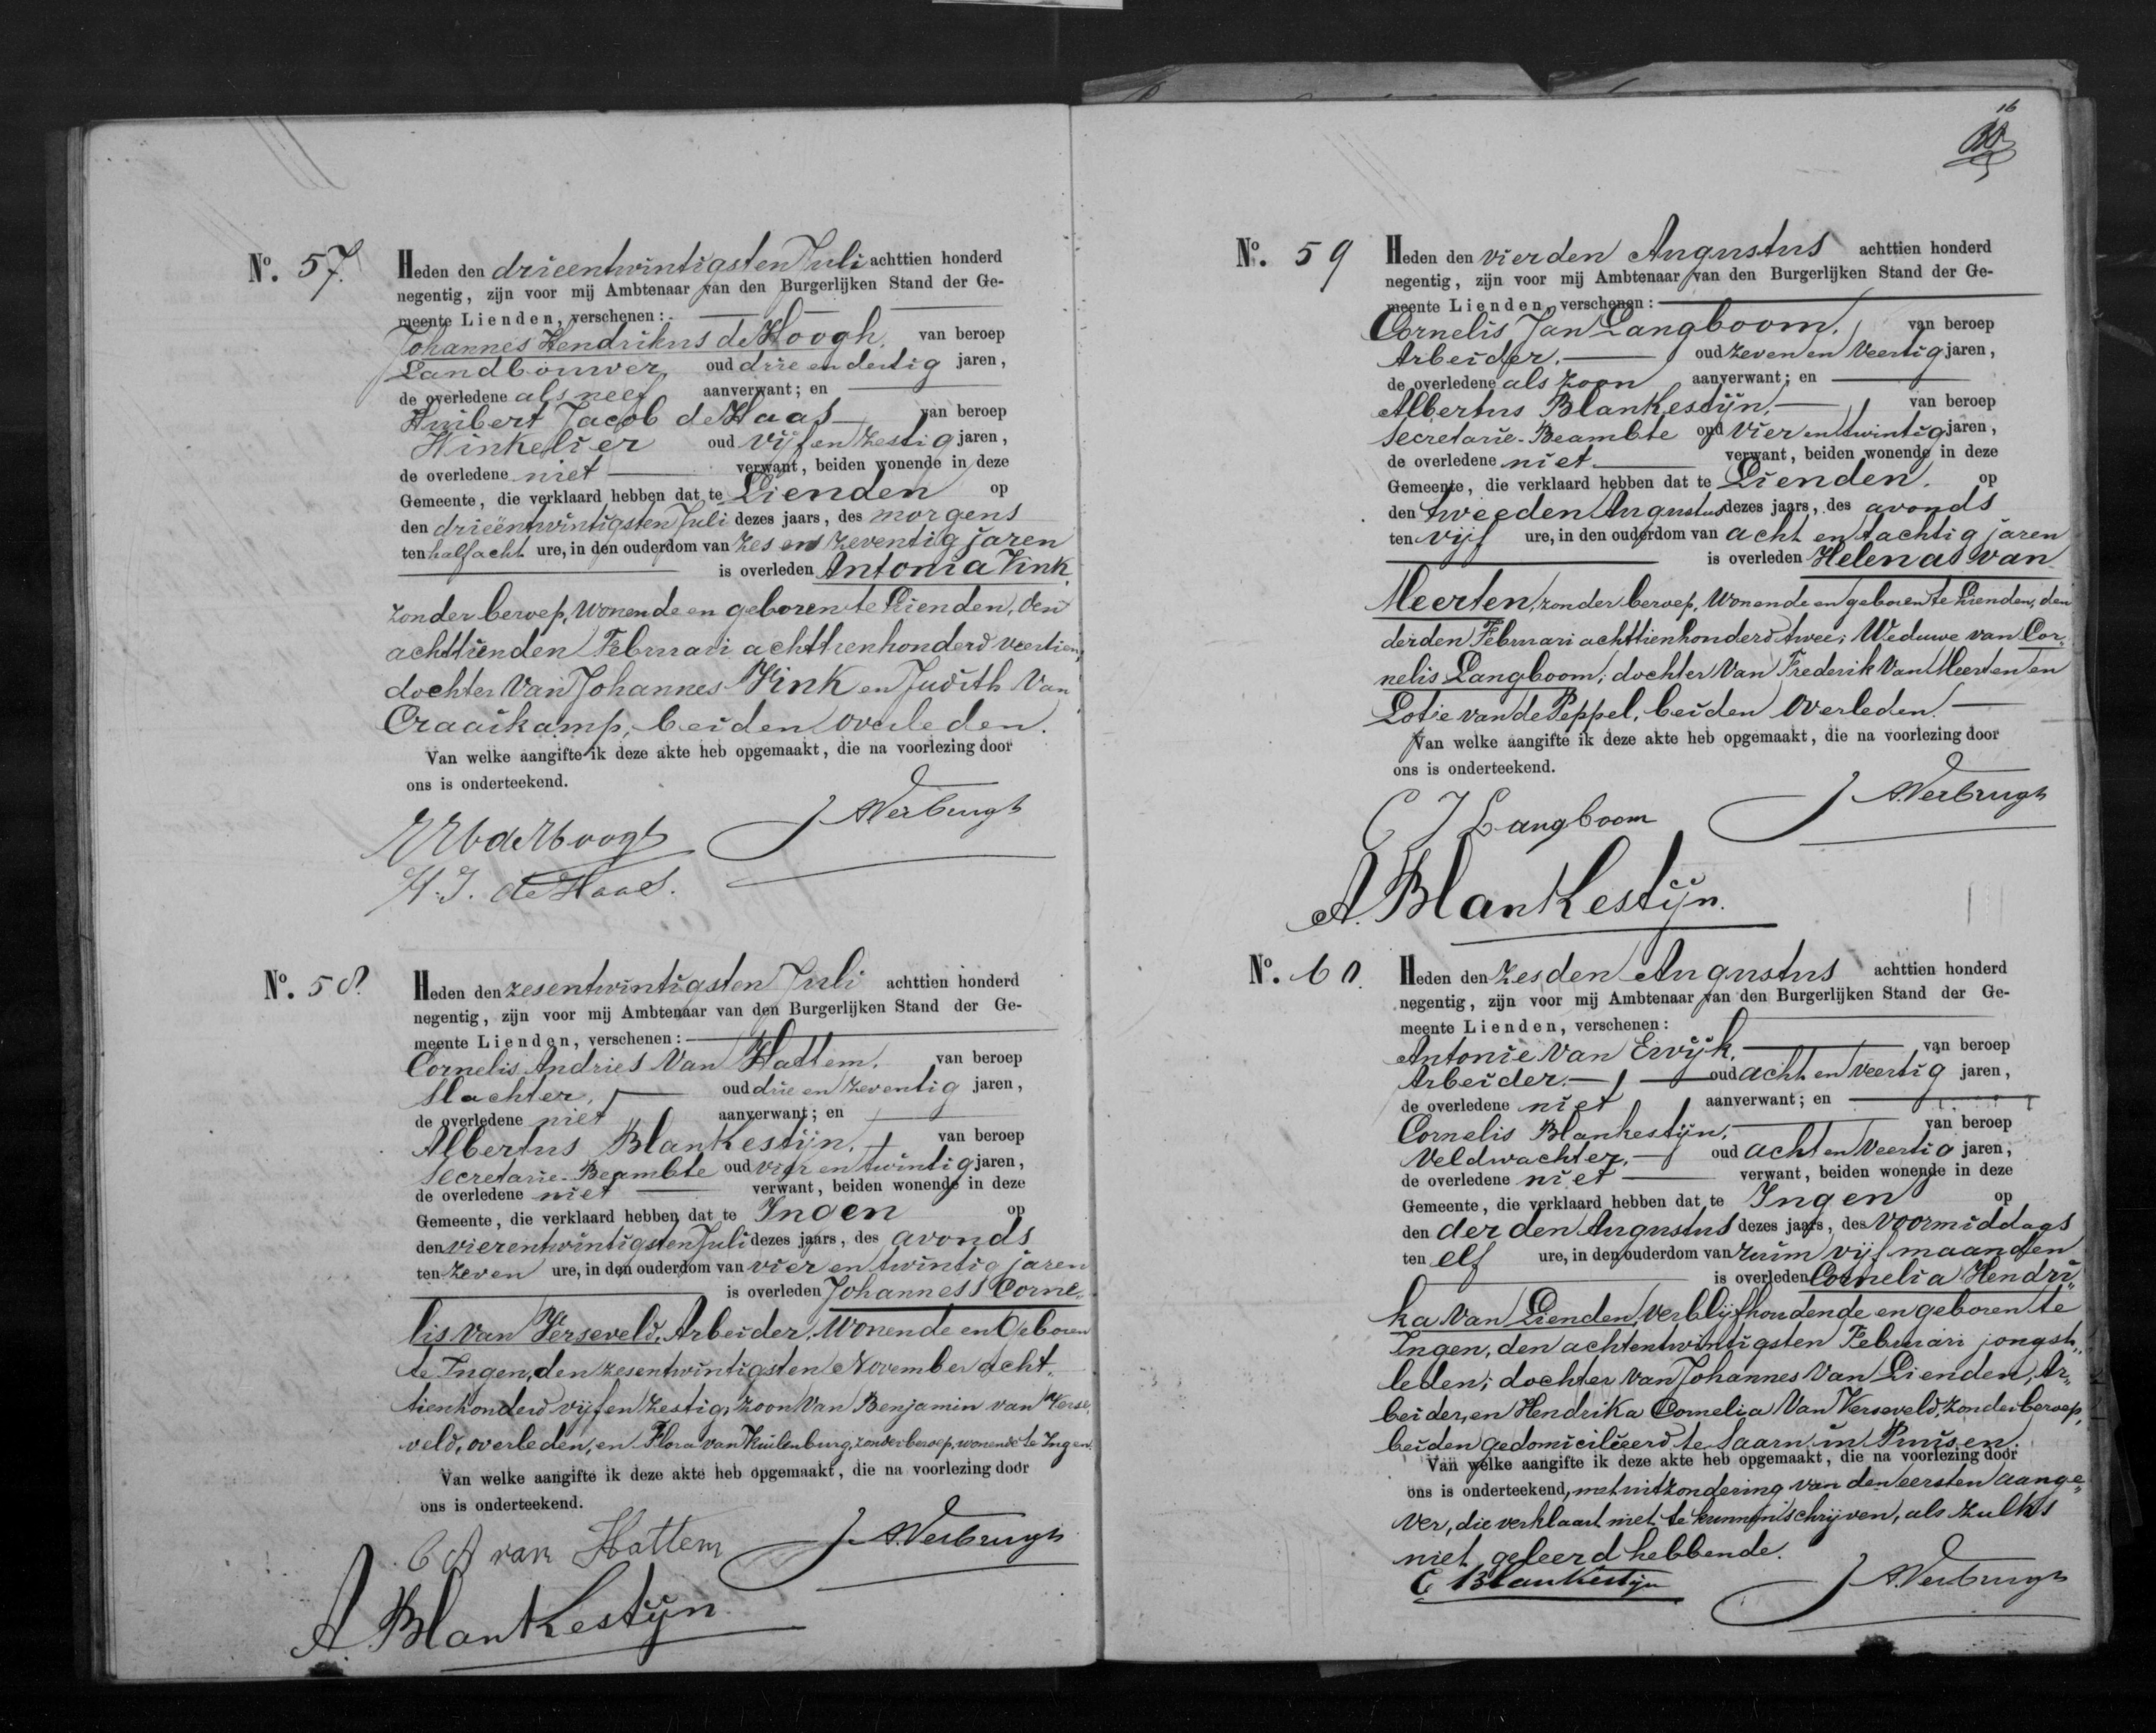 Nº. 57. Heden den drieentwintigsten Juli achttien honderd
negentig, zijn voor mij Ambtenaar van den Burgerlijken Stand der Ge-
meente Lienden, verschenen:
Johannes Hendrikus de Hoogh, van beroep
Landbouwer oud drie en dertig jaren,
de overledene als neef aanverwant; en
Huibert Jacob de Haas van beroep
Winkelier oud vijf en zestig jaren,
de overledene niet verwant, beiden wonende in deze
Gemeente, die verklaard hebben dat te Lienden op
den drieëntwintigsten Juli dezes jaars, des morgens
ten half acht ure, in den ouderdom van zes en zeventig jaren
is overleden Antonia Vink
zonder beroep, wonende en geboren te Lienden, den
achttienden Februari achttienhonderd veertien,
dochter van Johannes Vink en Judith van
Craaikamp, beiden overleden.
Van welke aangifte ik deze akte heb opgemaakt, die na voorlezing door
ons is onderteekend.
de Hoogh J A Verbrugh
H. J. de Haas.
Nº. 58. Heden den zesentwintigsten Juli achttien honderd
negentig, zijn voor mij Ambtenaar van den Burgerlijken Stand der Ge-
meente Lienden, verschenen:
Cornelis Andries van Hattem, van beroep
slachter, oud drie en zeventig jaren,
de overledene niet aanverwant; en
Albertus Blankestijn, van beroep
secretarie-Beambte oud vier en twintig jaren,
de overledene niet verwant, beiden wonende in deze
Gemeente, die verklaard hebben dat te Ingen op
den vierentwintigsten Juli dezes jaars, des avonds
ten zeven ure, in den ouderdom van vier en twintig jaren
is overleden Johannes Corne-
lis van Verseveld, Arbeider, wonende en geboren
te Ingen, den zesentwintigsten November acht-
tienhonderd vijf en zestig, zoon van Benjamin van Verse-
veld, overleden, en Flora van Kuilenburg, zonder beroep, wonende te Ingen.
Van welke aangifte ik deze akte heb opgemaakt, die na voorlezing door
ons is onderteekend.
C A van Hattem J A Verbrugh
A. Blankestijn
16
Nº. 59 Heden den vierden Augustus achttien honderd
negentig, zijn voor mij Ambtenaar van den Burgerlijken Stand der Ge-
meente Lienden, verschenen:
Cornelis Jan Langboom, van beroep
Arbeider, oud zeven en veertig jaren,
de overledene als zoon aanverwant; en
Albertus Blankestijn, van beroep
secretarie-Beambte oud vier en twintig jaren,
de overledene niet verwant, beiden wonende in deze
Gemeente, die verklaard hebben dat te Lienden, op
den tweeden Augustus dezes jaars, des avonds
ten vijf ure, in den ouderdom van acht en tachtig jaren
is overleden Helena van
Meerten, zonder beroep, wonende en geboren te Lienden, den
derden Februari achttienhonderd twee; Weduwe van Cor-
nelis Langboom; dochter van Frederik van Meerten en
Lotie van de Peppel, beiden overleden.
Van welke aangifte ik deze akte heb opgemaakt, die na voorlezing door
ons is onderteekend.
C J Langboom J A Verbrugh
A. Blankestijn.
Nº. 60. Heden den zesden Augustus achttien honderd
negentig, zijn voor mij Ambtenaar van den Burgerlijken Stand der Ge-
meente Lienden, verschenen:
Antonie van Ewijk, van beroep
Arbeider, oud acht en veertig jaren,
de overledene niet aanverwant; en
Cornelis Blankestijn, van beroep
Veldwachter, oud acht en veertig jaren,
de overledene niet verwant, beiden wonende in deze
Gemeente, die verklaard hebben dat te Ingen op
den derden Augustus dezes jaars, des voormiddags
ten elf ure, in den ouderdom van ruim vijf maanden
is overleden Cornelia Hendri-
ka van Lienden, verblijfhoudende en geboren te
Ingen, den achtentwintigsten Februari jongst-
leden; dochter van Johannes van Lienden, Ar-
beider, en Hendrika Cornelia van Verseveld, zonder beroep,
beiden gedomicilieerd te Saarn in Pruisen.
Van welke aangifte ik deze akte heb opgemaakt, die na voorlezing door
ons is onderteekend, met uitzondering van den eersten aange-
ver, die verklaart niet te kunnen schrijven, als zulks
niet geleerd hebbende.
C Blankestijn J A Verbrugh